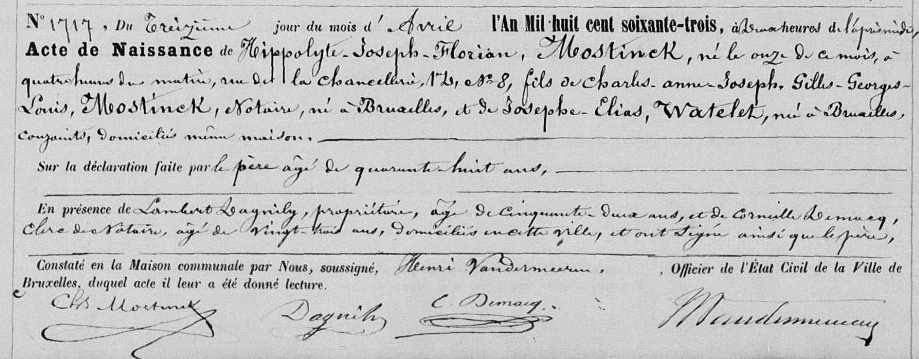 N° 1717, Du Treizième jour du mois d'Avril l'An Mil huit cent soixante-trois, à Deux heures de l'après midi,
Acte de Naissance de Hippolyte-Joseph-Florian, Mostinck, né le onze de ce mois, à
quatre heures du matin, rue de la Chancellerie, 12, N° 8, fils de Charles-anne-Joseph-Gilles-Georges-
Louis, Mostinck, Notaire, né à Bruxelles, et de Josephe-Elias, Watelet, née à Bruxelles,
conjoints, domiciliés même maison.
Sur la déclaration faite par le père âgé de quarante-huit ans,
En présence de Lambert Dagnily, propriétaire, âgé de Cinquante-deux ans, et de Corneille Demacq,
Clerc de Notaire, âgé de vingt-trois ans, domiciliés en cette ville, et ont Signé ainsi que le père,
Constaté en la Maison communale par Nous, soussigné, Henri Vandermeeren, Officier de l'État Civil de la Ville de
Bruxelles, duquel acte il leur a été donné lecture.
Chs Mostinck Dagnily C. Demacq. Vandermeeren